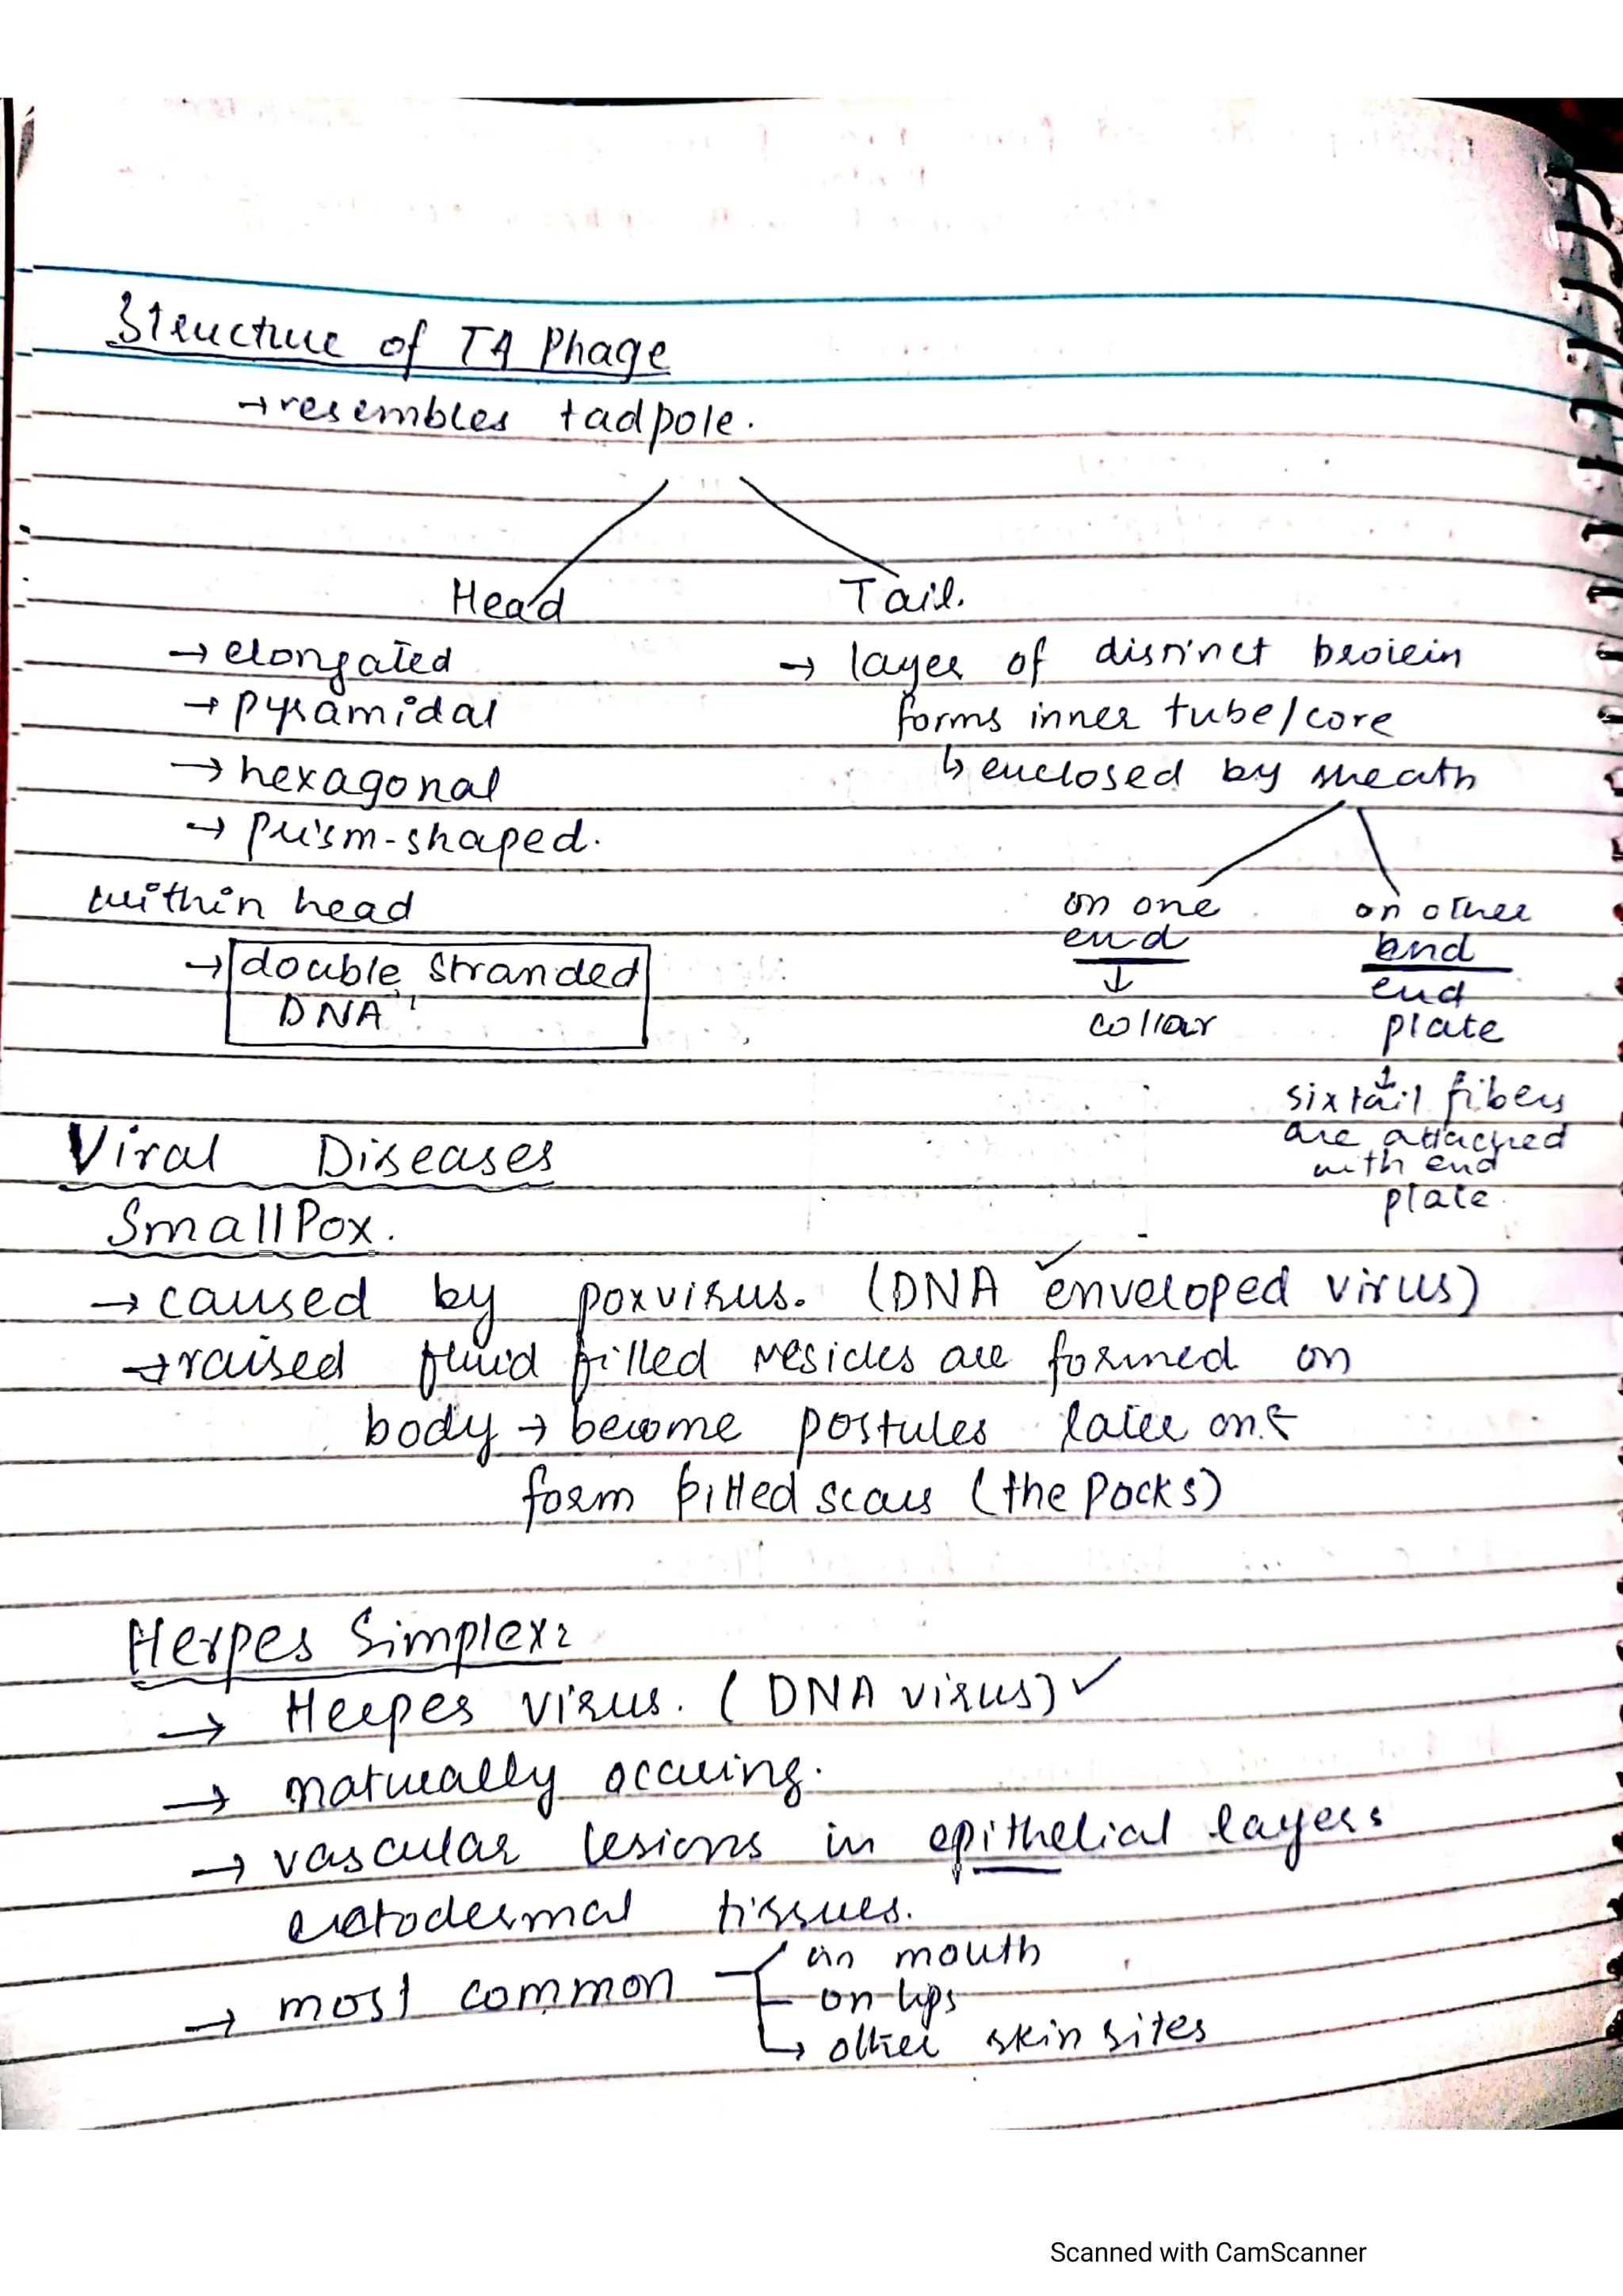 Structure of T4 Phage
→ resembles tadpole.
Head
→ elongated
→ pyramidal
→ hexagonal
→ prism-shaped.
within head
→ double stranded
DNA
Tail.
→ layer of distinct protein
forms inner tube/core
↳ enclosed by sheath
on one
end
↓
collar
on other
end
end
plate
↓
six tail fibers
are attached
with end
plate
Viral Diseases
SmallPox.
→ caused by poxvirus. (DNA enveloped virus)
→ raised fluid filled vesicles are formed on
body → become postules later on &
form pitted scars (the Pocks)
Herpes Simplex:
→ Herpes virus. (DNA virus) ✓
→ naturally occuring.
→ vascular lesions in epithelial layers
ectodermal tissues.
→ most common
in mouth
on lips
→ other skin sites
Scanned with CamScanner